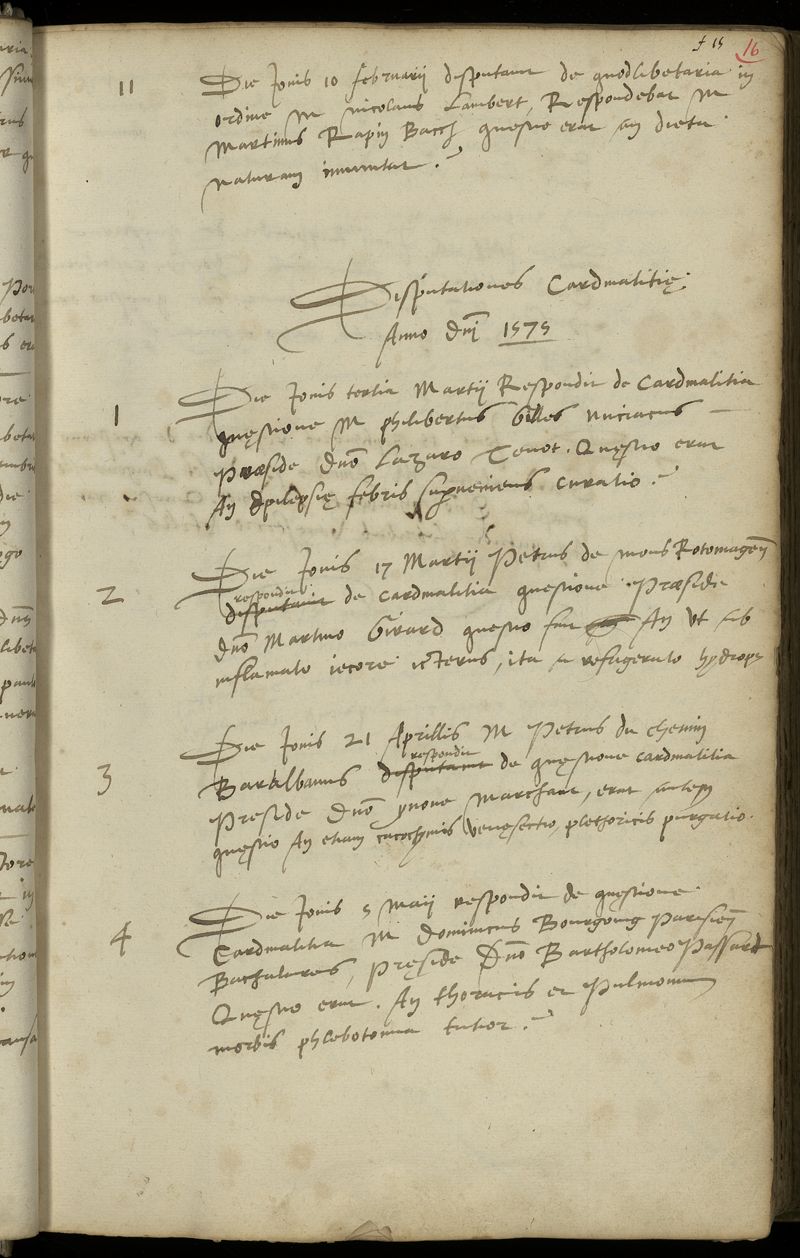 f 15 16
11 Die Jovis 10 februarii disputavit de quodlibetaria in
ordine M Nicolaus Lambert, Respondebat M
Martinus Rapin Bacch questio erat an dieta
naturam immutat.?
Disputationes Cardinalitię.
Anno Dnj 1575
1 Die Jovis tertia Martij Respondit de Cardinalitia
quęstione M philibertus Gilles
Pręside dnō Lazaro Tenot. Quęstio erat
An Epilepsię febris superveniens curatio.?
2 Die Jovis 17 Martij Petrus de mons Rotomageñ
respondit
disputavit de cardinalitia questione Pręside
dnō Martino Girard questio fuit An ut ab
inflamato iecore icterus, ita a refrigerato hydrops
3 Die Jovis 21 Aprillis M Petrus du chemin
respondit
disputavit de quęstione cardinalitia
Preside dnō ynone Marchant, erat autem
quęstio An etiam cacochymis venęsectio, plethoricis purgatio.
4 Die Jovis 5 Maij respondit de quęstione
Cardinalitia M Dominicus Bourgoing Parisieñ
Bachalareus, Pręside Dnō Bartholomeo Passart
Quęstio erat. An thoracis et Pulmonum
morbis phlebotomia tutior.?